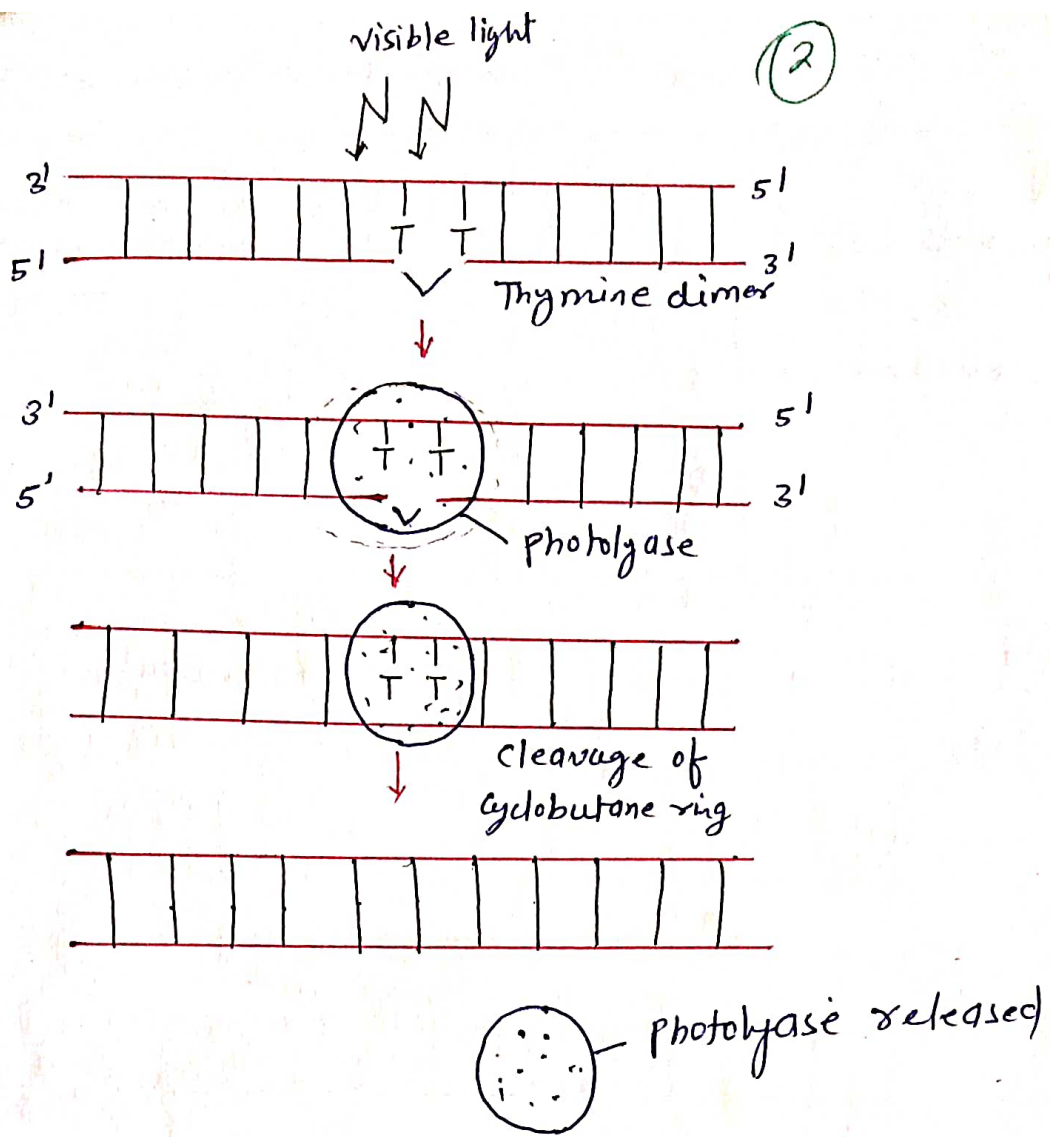 visible light
2
3' 5'
T T
5' 3'
Thymine dimer
3' 5'
T T
5' 3'
photolyase
T T
cleavage of
cyclobutane ring
photolyase released